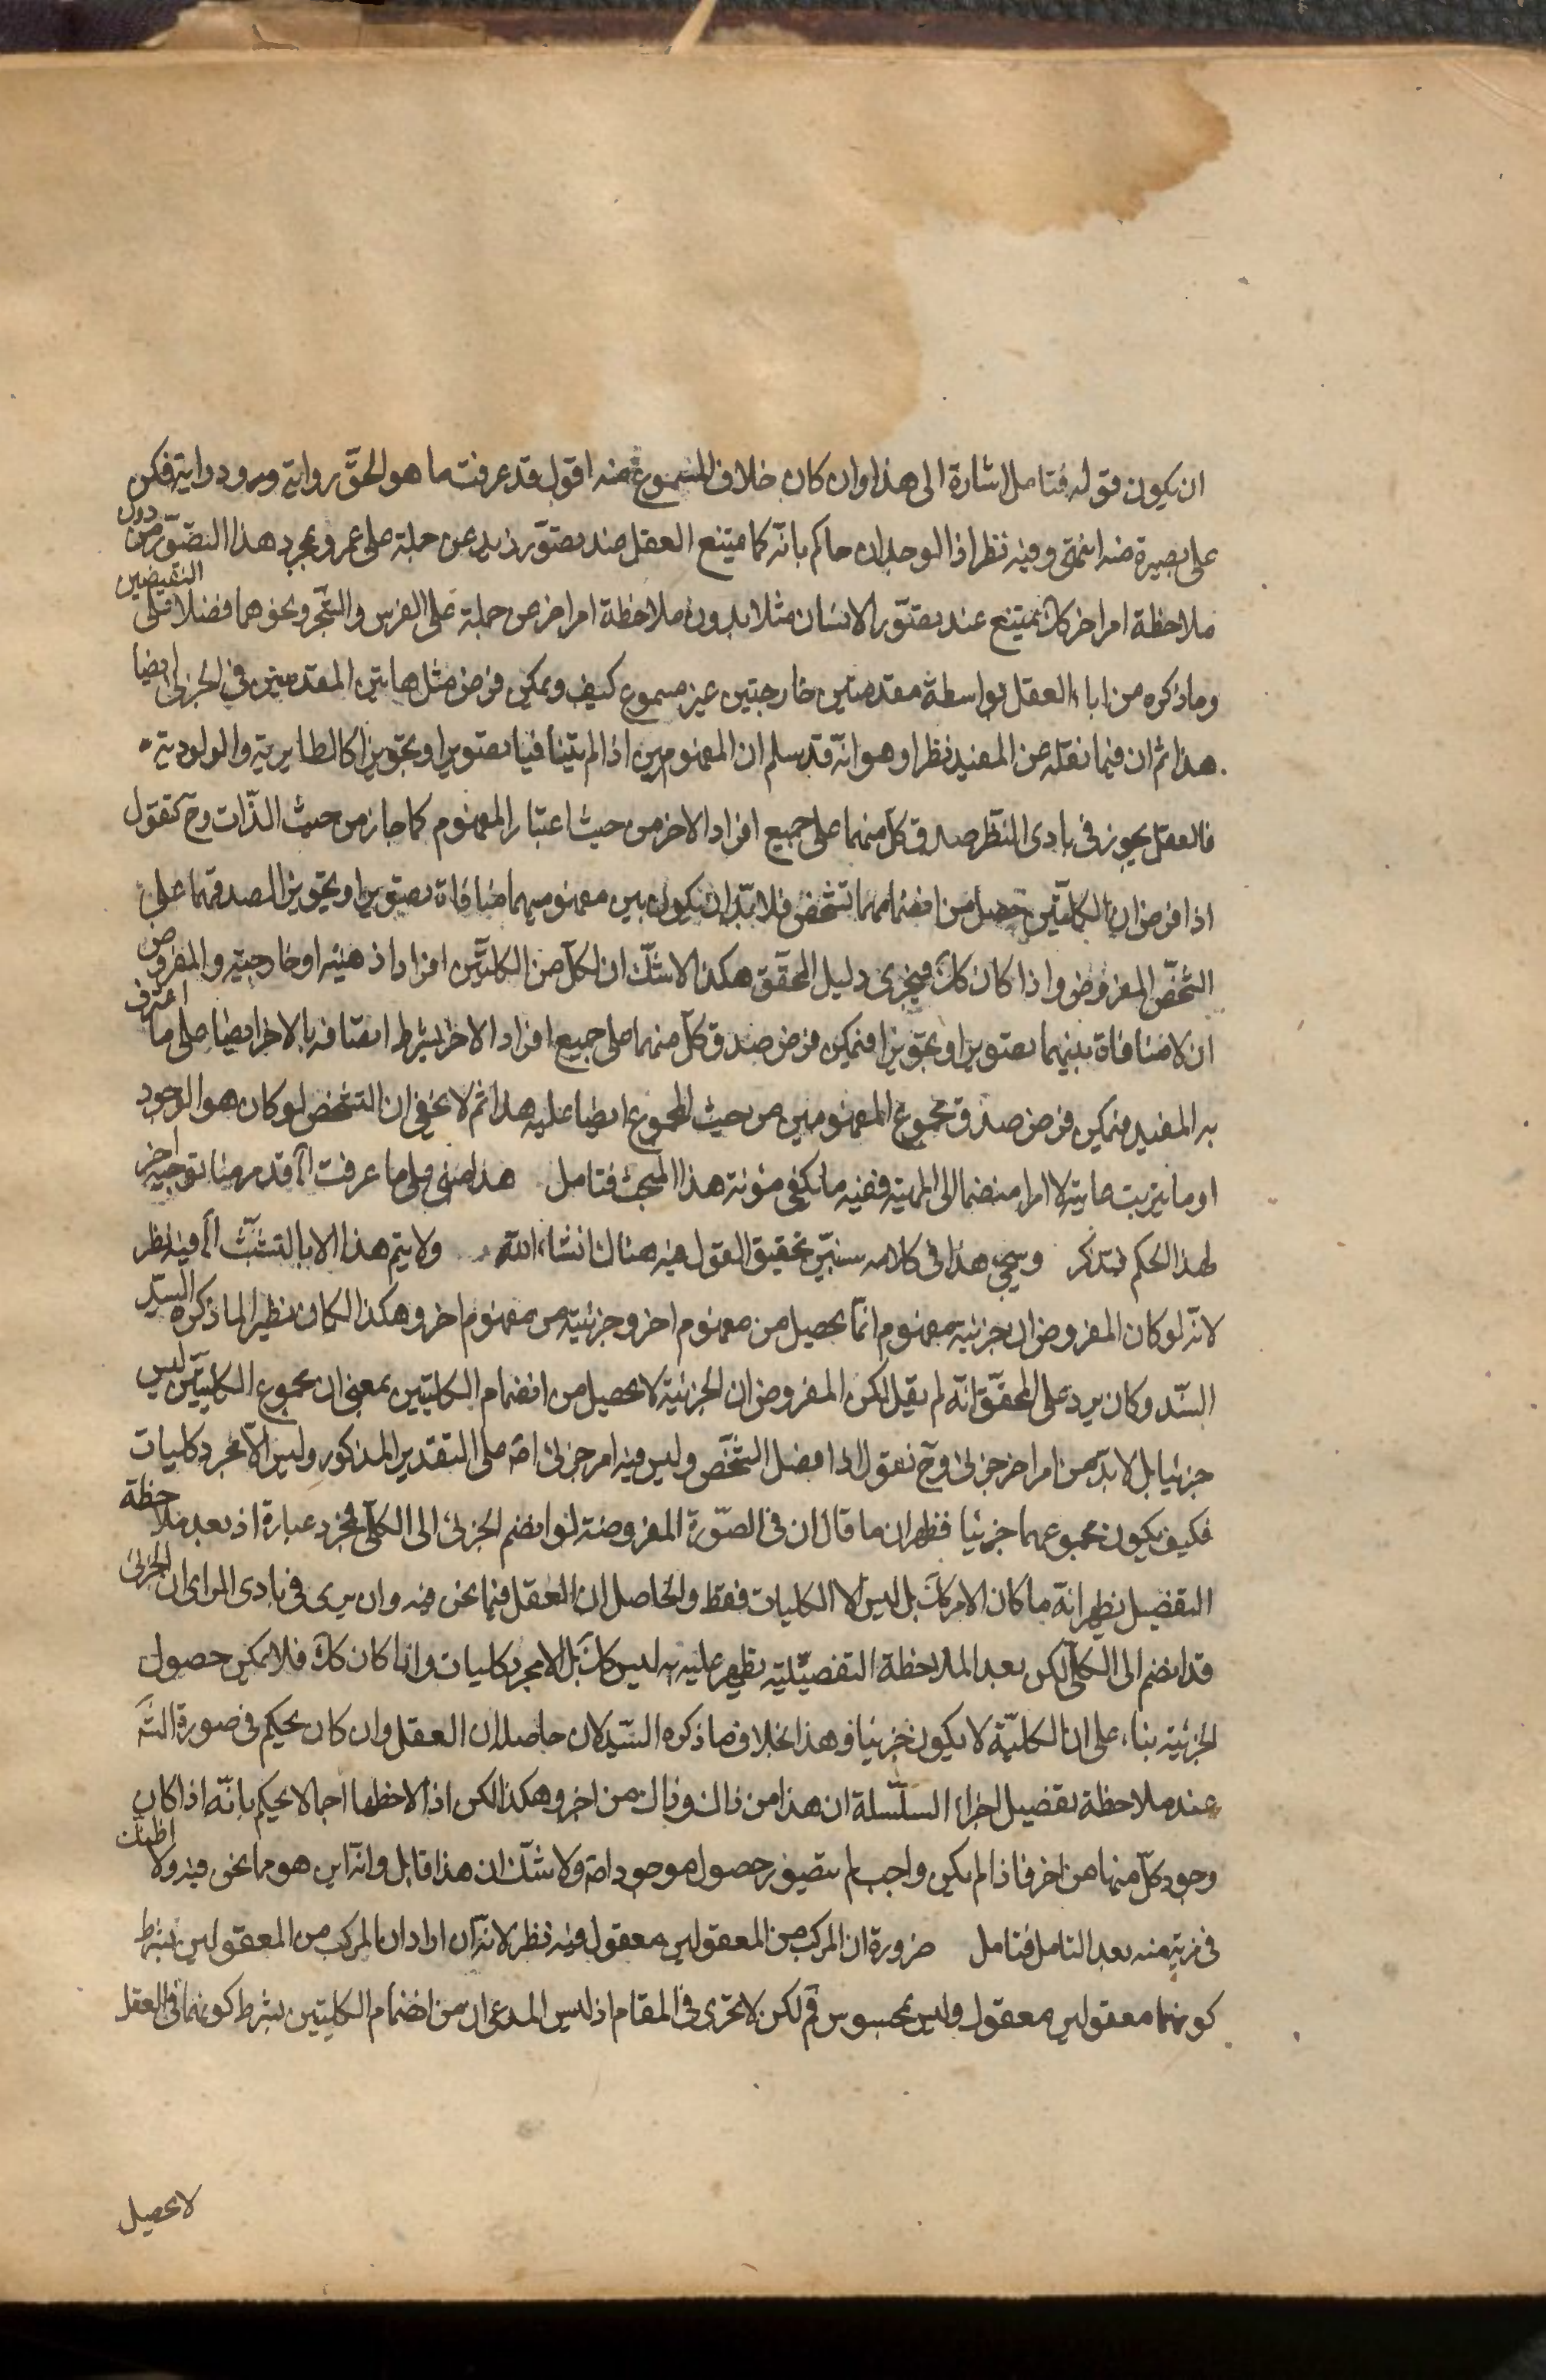 ان يكون قوله فتامل اشارة الى هذا وان كان خلاف المسموع منه اقول قد عرفت ما هو الحق رواية ودراية فكن
على بصيرة منه انتهى وفيه نظر اذ الوجدان حاكم بانه كما يمتنع العقل عند تصور زيد عن حمله على عمرو بمجرد هذا التصور من دون
ملاحظة امر اخر كك يمتنع عند تصور الانسان مثلا بدون ملاحظة امر اخر عن حمله على الفرس والشجر ونحوهما فضلا على النقيضين
وما ذكره من اباء العقل بواسطة مقدمتين خارجتين غير مسموع كيف ويمكن فرض مثل هاتين المقدمتين في الجزئي ايضا
هذا ثم ان فيما نقله عن المفيد نظرا وهو انه قد سلم ان المفهومين اذا لم يتنافيا تصويرا وتجويزا كالطايرية والولودية
فالعقل يجوز في بادى النظر صدق كل منهما على جميع افراد الاخر من حيث اعتبار المفهوم كما جاز من حيث الذات وح كنقول
اذا فرض ان الكليتين حصل من انضمامهما تشخص فلا بد ان يكون بين مفهوميهما منافاة تصويرا وتجويزا لصدقهما على
الشخص المفروض واذا كان كك فيجرى دليل المحقق هكذا لا شك ان لكل من الكليتين افرادا ذهنية او خارجية والمفروض
ان لا منافاة بينهما تصويرا وتجويزا فيمكن فرض صدق كل منهما على جميع افراد الاخر بشرط اتصافه بالاخر ايضا على ما اعترف
به المفيد فيمكن فرض صدق مجموع المفهومين من حيث المجموع ايضا عليه هذا ثم لا يخفى ان التشخص لو كان هو الوجود
او ما يترتب عليه لا امرا منضما الى المهية ففيه ما يكفى مؤنة هذا المبحث فتامل هذا مبنى على ما عرفت اه قد مر منا توجيه اخر
لهذا الحكم فتذكر وسيجئ هذا في كلامه سنبين تحقيق القول فيه هناك انشاء الله ولا يتم هذا الا بالتشبث اه فيه نظر
لانه لو كان المفروض ان جزئية مفهوم انما يحصل من مفهوم اخر وجزئيته من مفهوم اخر وهكذا لكان نظيرا لما ذكره السيد
السند وكان يرد على المحقق انه لم يقل لكن المفروض ان الجزئية لا يحصل من انضمام الكليتين بمعنى ان مجموع الكليتين ليس
جزئيا بل لا بد من امر اخر جزئى وح نقول اذا فصل الشخص وليس فيه امر جزئى اصلا على التقدير المذكور وليس الا مجرد كليات
فكيف يكون مجموعهما جزئيا فظهر ان ما قال ان في الصورة المفروضة لو انضم الجزئى الى الكلى مجرد عبارة اذ بعد ملاحظة
التفصيل يظهر انه ما كان الامر كك بل ليس الا الكليات فقط والحاصل ان العقل فيما نحن فيه وان يرى في بادى الراى ان الجزئى
قد انضم الى الكلى لكن بعد الملاحظة التفصيلية يظهر عليه انه ليس كك بل الا مجرد كليات واذا كان كك فلا يمكن حصول
الجزئية بناء على ان الكلية لا يكون جزئيا وهذا بخلاف ما ذكره السيد لان حاصله ان العقل وان كان يحكم في صورة التسَ
عند ملاحظة تفصيل اجزاء السلسلة ان هذا من ذاك وذاك من اخر وهكذا لكن اذا لاحظها اجمالا يحكم بانه اذا كان
وجود كل منها من اخر فاذا لم يكن واجب لم يتصور حصول موجود اصلا ولا شك ان هذا قابل وانه اين هو مما نحن فيه ولا اظنك
في مرية منه بعد التامل فتامل ضرورة ان المركب من المعقولين معقول فيه نظر لانه ان اراد ان المركب من المعقولين بشرط
كونهما معقولين معقول وليس بمحسوس فم لكن لا يجرى في المقام اذ ليس المدعى ان من انضمام الكليتين بشرط كونهما في العقل
لا يحصل